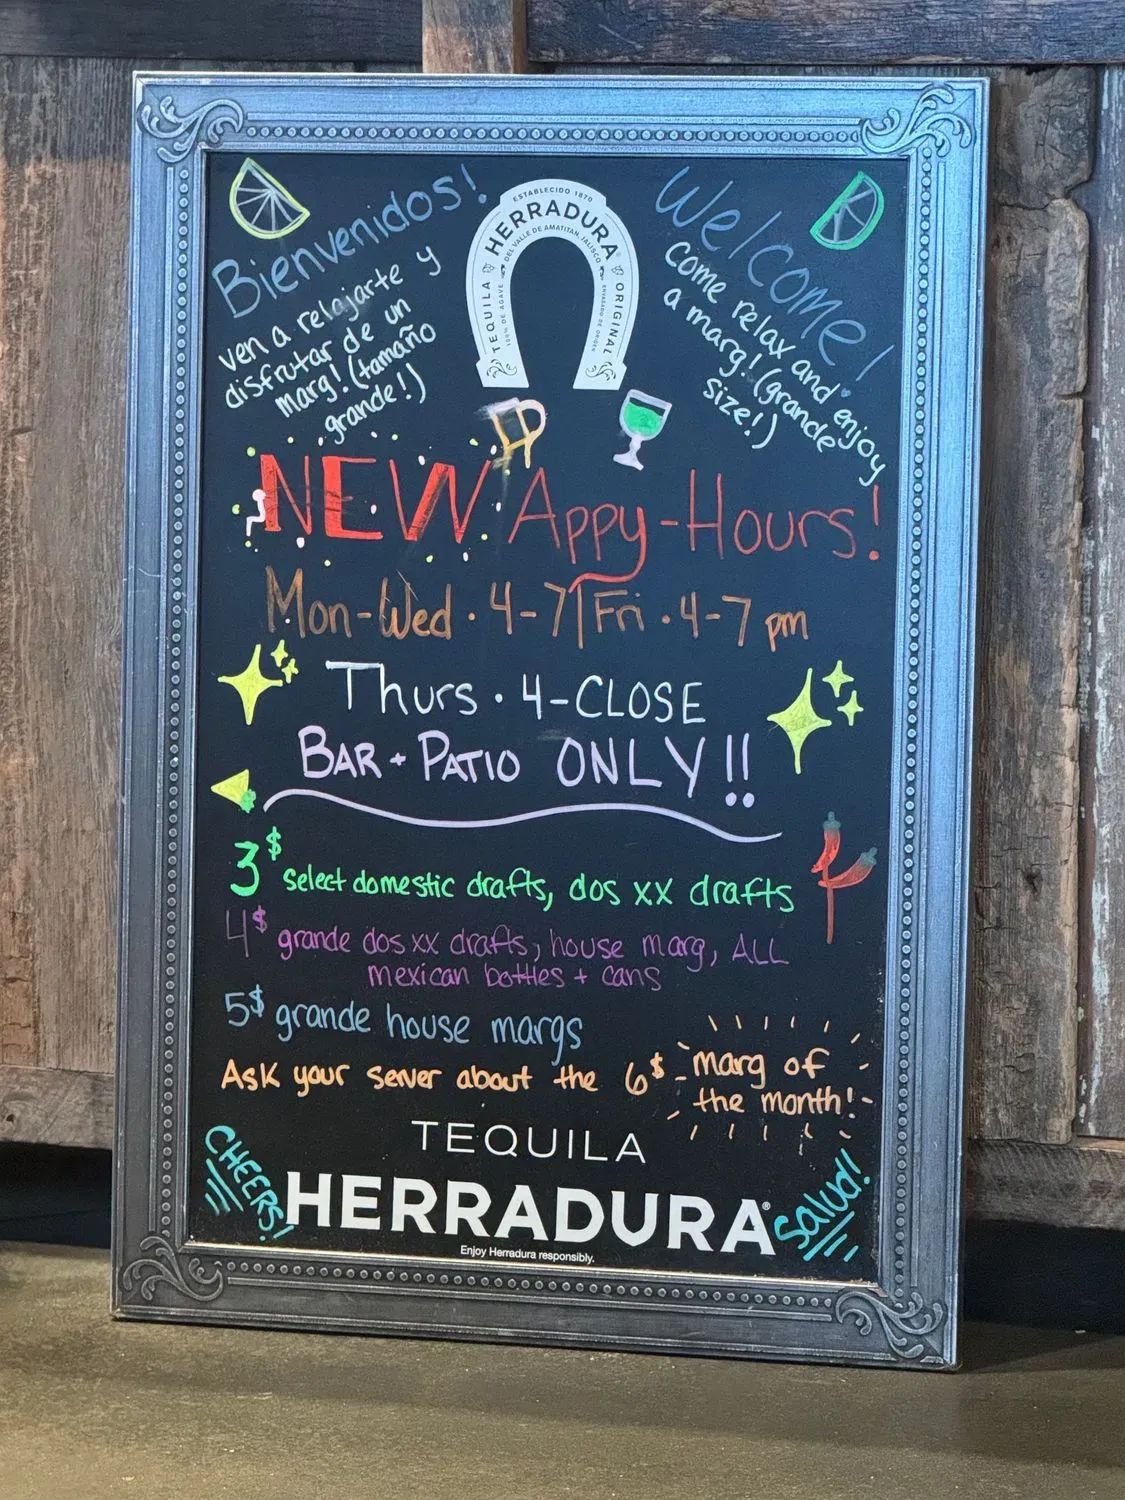 Bienvenidos!
ven a relajarte y
disfrutar de un
marg! (tamaño
grande!)
ESTABLECIDO 1870
HERRADURA
DEL VALLE DE AMATITAN, JALISCO
TEQUILA
100% DE AGAVE
ORIGINAL
Welcome!
Come relax and enjoy
a marg! (grande
size!)
NEW Appy-Hours!
Mon-Wed · 4-7 | Fri · 4-7 pm
Thurs · 4-CLOSE
BAR + PATIO ONLY!!
3$ select domestic drafts, dos xx drafts
4$ grande dos xx drafts, house marg, ALL
mexican bottles + cans
5$ grande house margs
Ask your server about the 6$ marg of
the month!
TEQUILA
CHEERS!
HERRADURA®
Salud!
Enjoy Herradura responsibly.